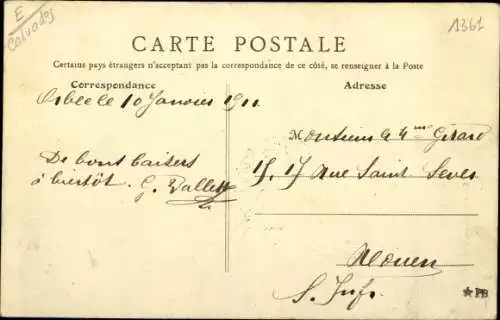 E
Calvados
1361
CARTE POSTALE
Certains pays étrangers n'acceptant pas la correspondance de ce côté, se renseigner à la Poste
Correspondance
Adresse
Orbec le 10 Janvier 1911
Monsieur & Mme Girard
15, 17 Rue Saint Sever
De bons baisers
à bientôt. G. Vallette
Rouen
S. Infre
PB